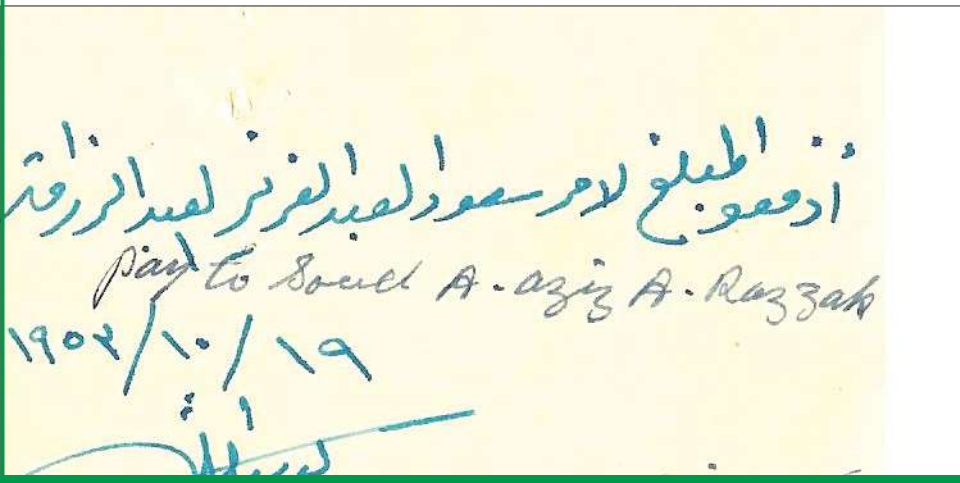 أدفعوا المبلغ لامر سعود العبد العزيز العبد الرزاق
pay to Soud A. aziz A. Razzak
١٩٥٣/١٠/١٩